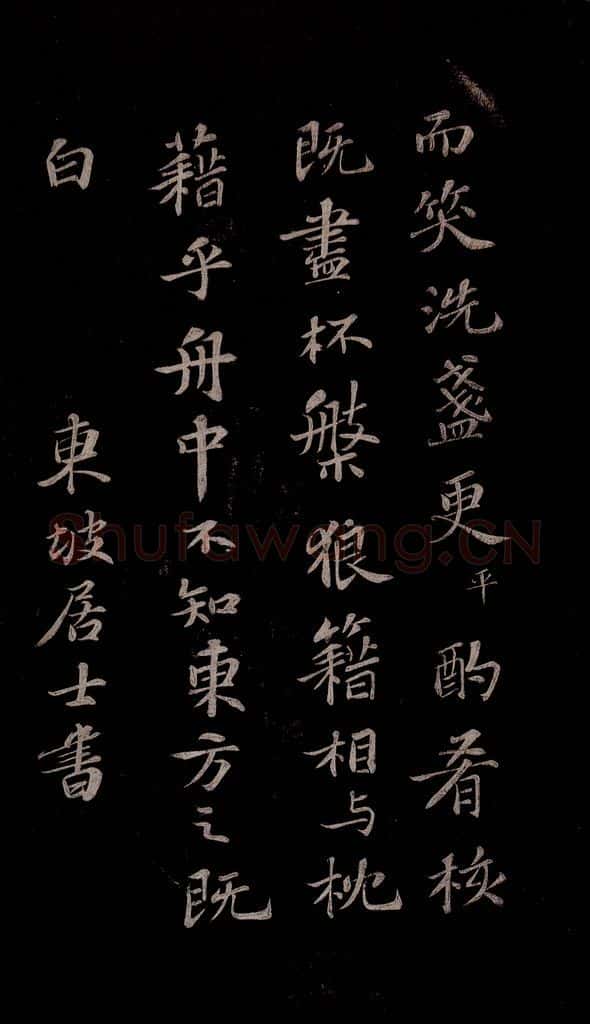 而笑洗盞更平酌肴核
既盡杯槃狼籍相与枕
藉乎舟中不知東方之既
白 東坡居士書
Shufawang.CN